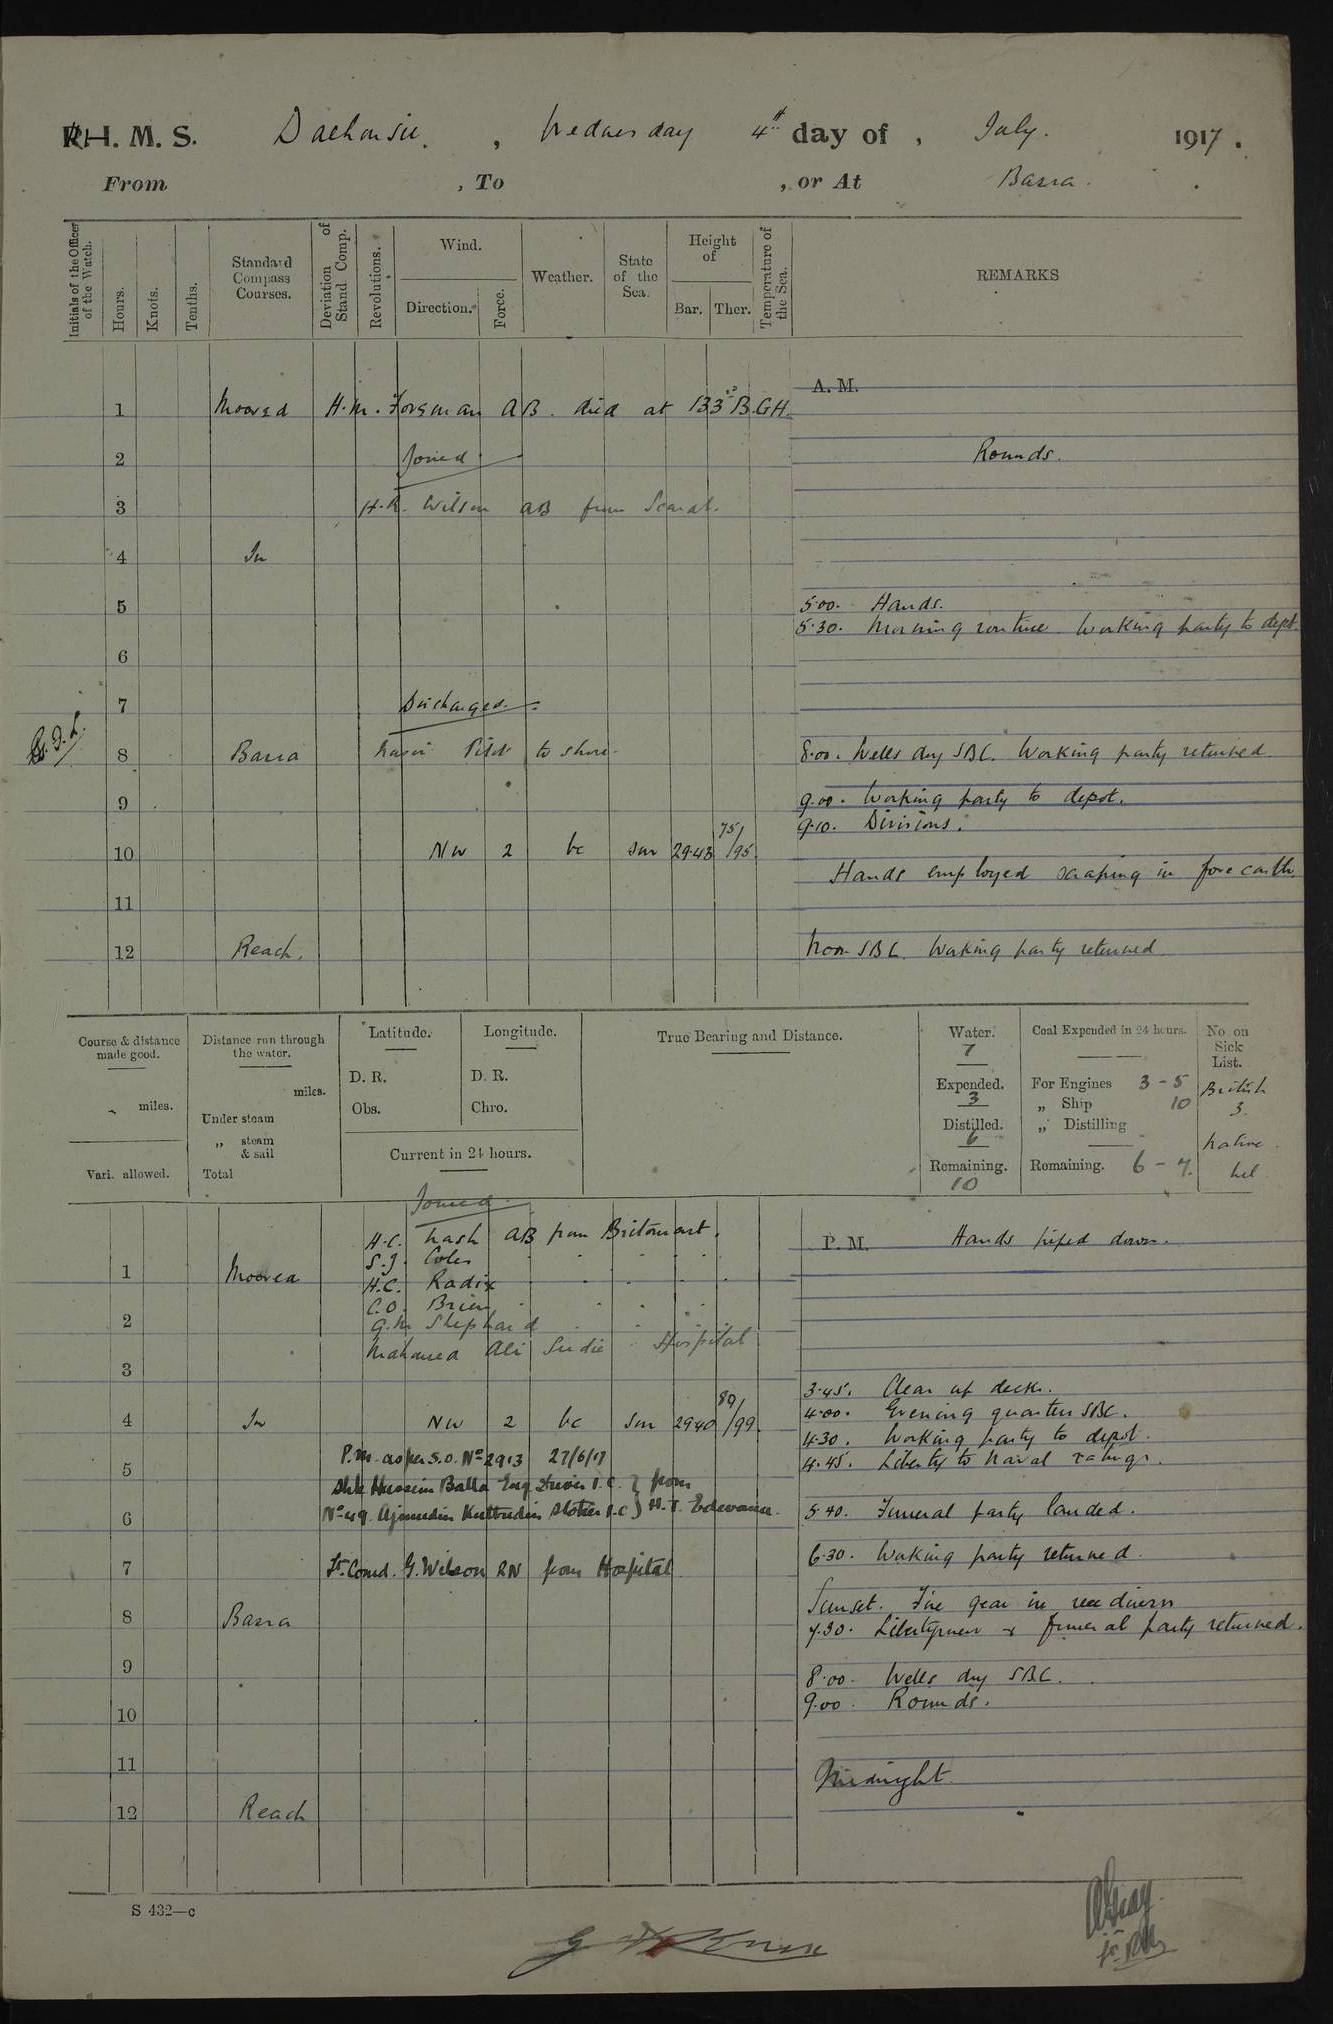 R.H.M.S. Dalhousie, Wednesday 4th day of, July. 1917.
From , To , or At Basra.
Initials of the Officer of the Watch.
Hours.
Knots.
Tenths.
Standard Compass Courses.
Deviation of Stand Comp.
Revolutions.
Wind.
Direction.
Force.
Weather.
State of the Sea.
Height of
Bar. Ther.
Temperature of the Sea.
REMARKS
A. M.
1 Moored H.M. Foreman AB. died at 33rd B.G.H.
2 Joined Rounds.
3 H.R. Wilson AB from Scarab.
4 In
5 5.00. Hands.
5.30. Morning routine Working party to dept.
6
7 Discharged
8 Basra Pilot to shore. 8.00. Wells dry SBC. Working party returned
9 9.00. Working party to depot.
9.10. Divisions.
10 NW 2 bc Sm 29.43 75/95
Hands employed scraping in fore
11
12 Reach. Noon SBC. Working party returned
Course & distance made good.
miles.
Vari. allowed.
Distance run through the water.
miles.
Under steam
„ steam & sail
Total
Latitude.
D. R.
Obs.
Longitude.
D. R.
Chro.
Current in 24 hours.
True Bearing and Distance.
Water.
7
Expended.
3
Distilled.
6
Remaining.
10
Coal Expended in 24 hours.
For Engines 3 - 5
„ Ship 10
„ Distilling
Remaining. 6 - 7.
No on Sick List.
British
3.
Native
Nil
Joined
P. M. Hands piped down.
H.C. Nash AB from Britomart.
S.J. Coles " " "
1 Moored H.C. Radix " " "
C.O. Brien " " "
2 G.M. Shephard " "
Mahomed Ali Hospital
3
3.45. Clear up decks.
4 In NW 2 bc Sm 29.40 80/99 4.00. Evening quarters SBC.
4.30. Working party to depot.
P.M. as per S.O. No 2913 27/6/17 4.45. Liberty to Naval ratings.
5 Shk Hussein Balla Eng Driver I.C. } from
6 No 49. Ajimudin Kutbudin Stoker I.C } H.T. 5.40. Funeral party landed.
6.30. Working party returned.
7 Lt. Comd. G. Wilson RN from Hospital
Sunset. Fire gear in
8 Basra 7.30. Libertymen & funeral party returned.
9 8.00. Wells dry SBC.
9.00. Rounds.
10
11 Midnight
12 Reach
S 432—c